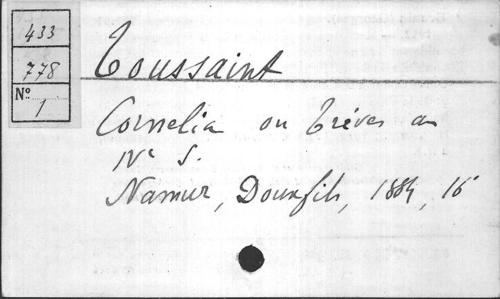 433
778
Nº
1
Toussaint
Cornelia ou Trèves au
IVe S.
Namur, Doux fils, 1884, 16°